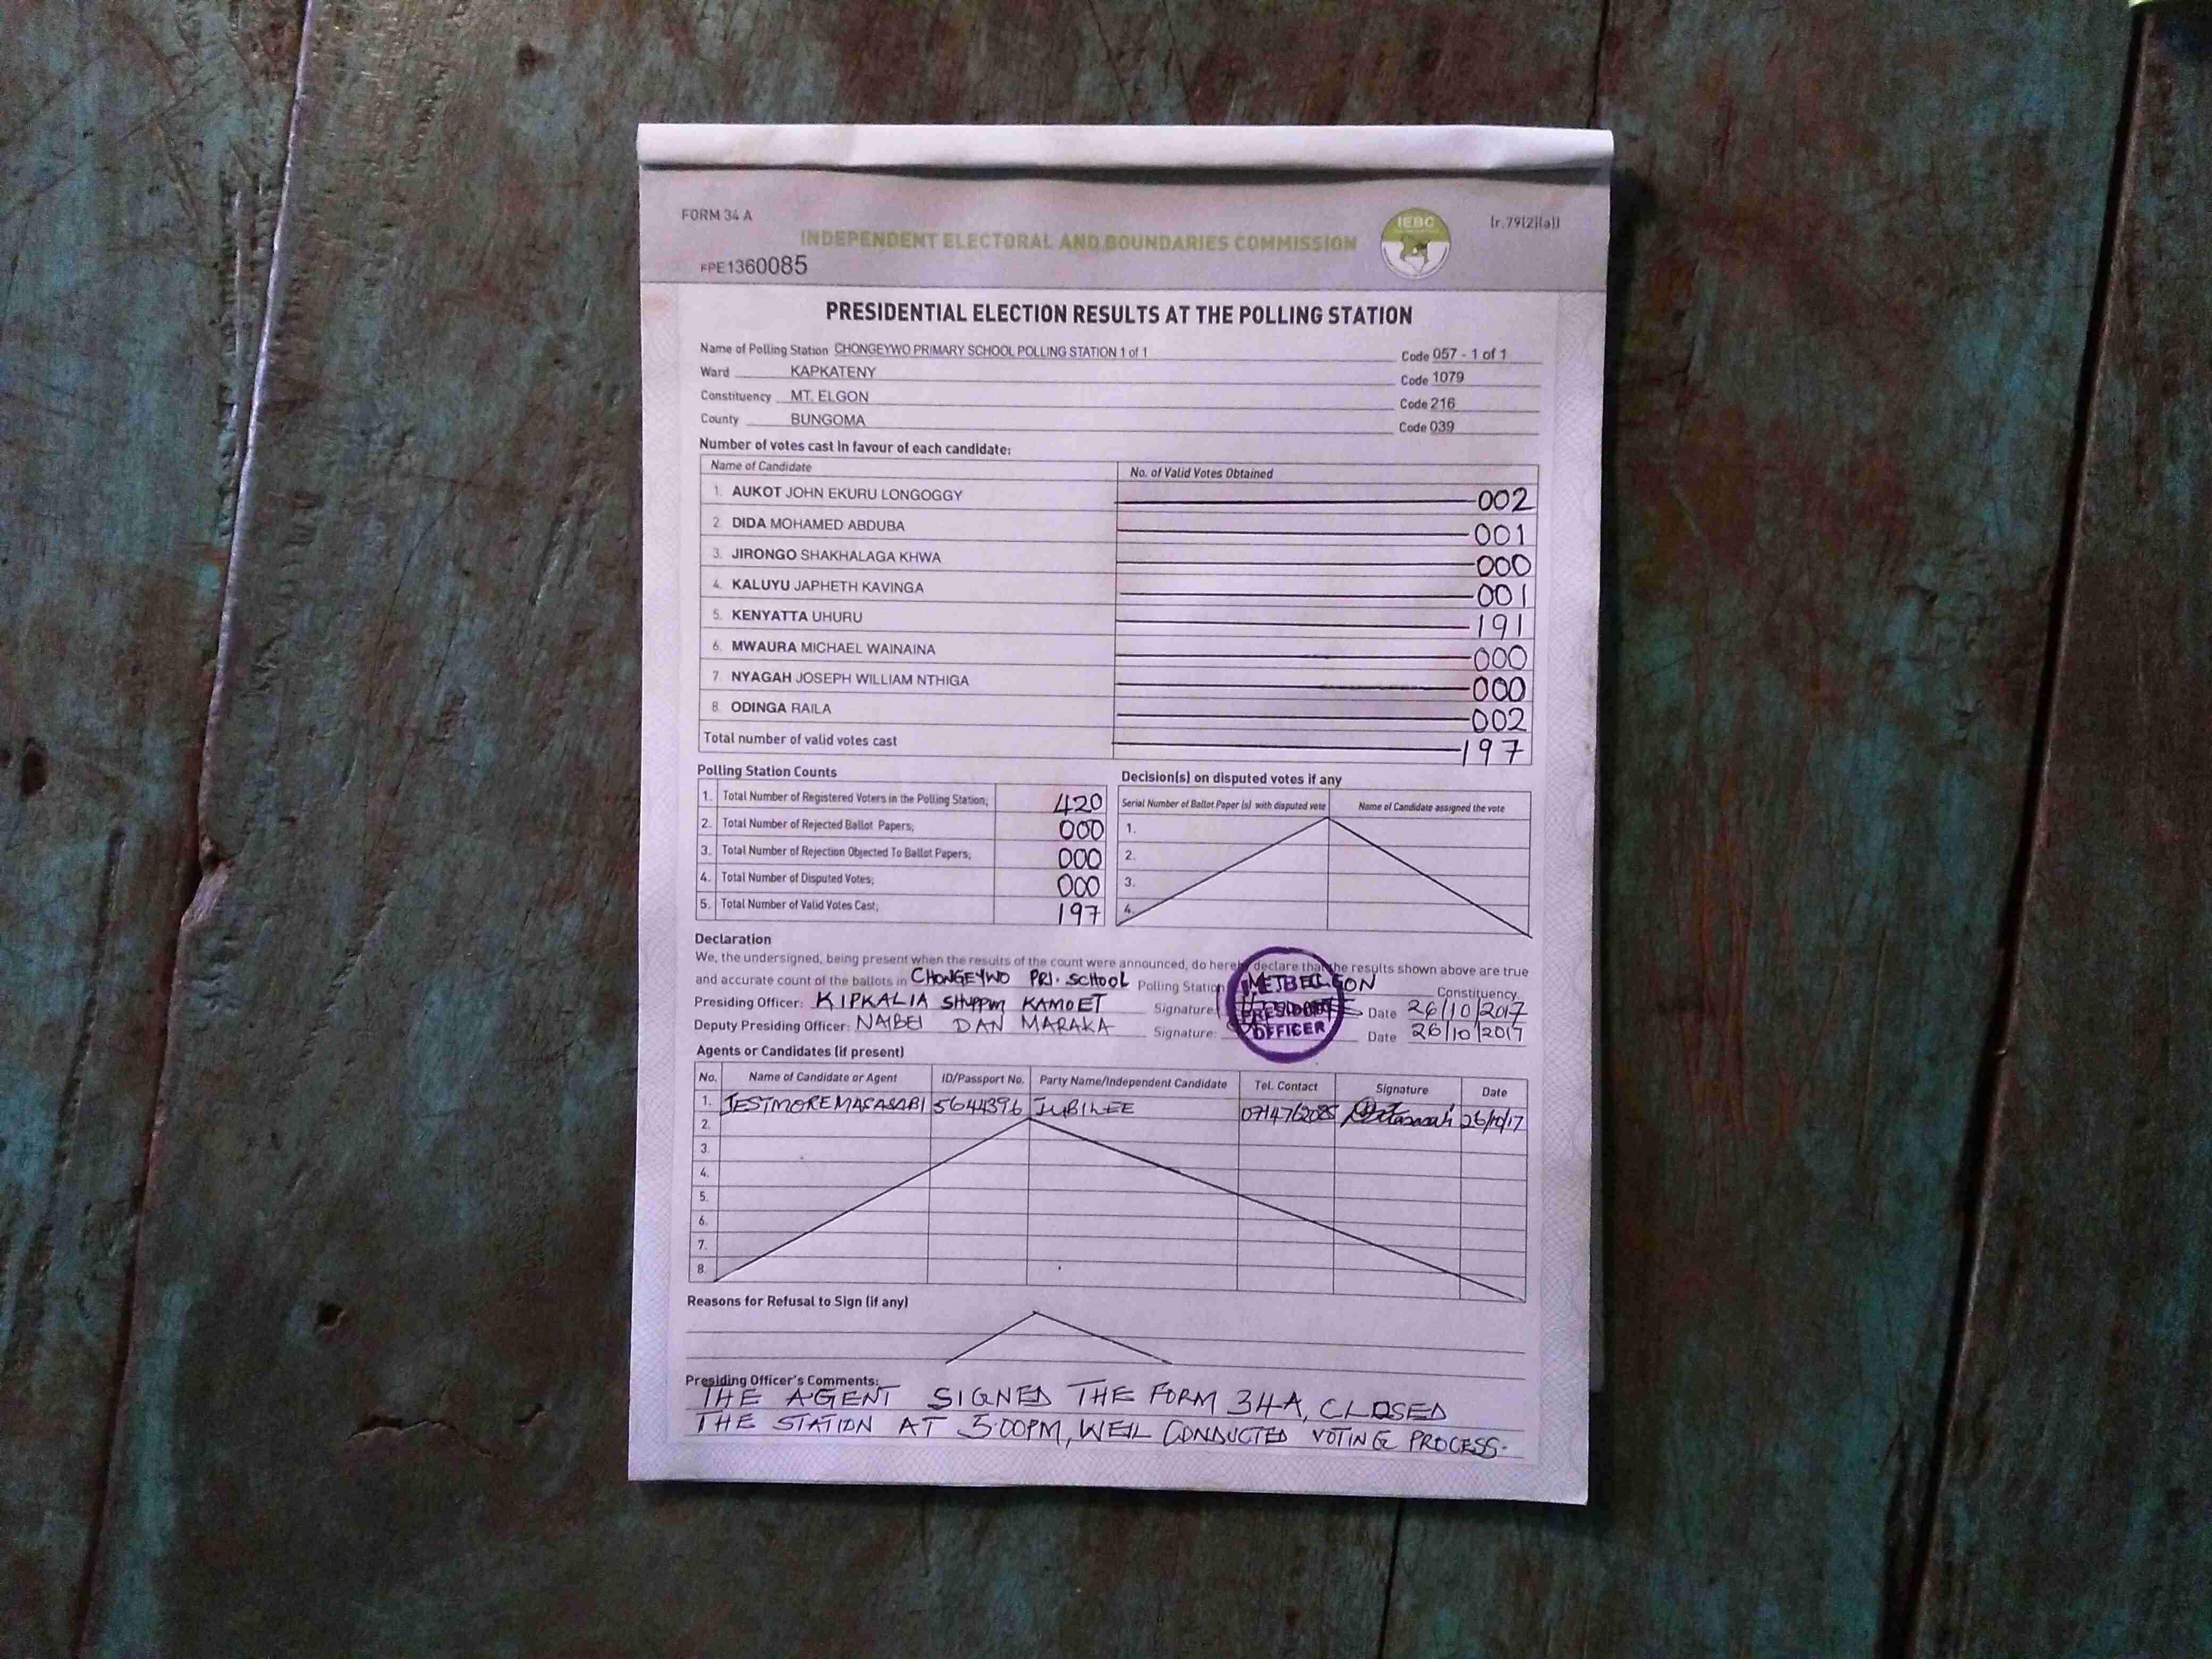 FORM 34 A
IEBC
(r.79(2)(a))
INDEPENDENT ELECTORAL AND BOUNDARIES COMMISSION
FPE1360085
PRESIDENTIAL ELECTION RESULTS AT THE POLLING STATION
Name of Polling Station CHONGEYWO PRIMARY SCHOOL POLLING STATION 1 of 1 Code 057 - 1 of 1
Ward KAPKATENY Code 1079
Constituency MT. ELGON Code 216
County BUNGOMA Code 039
Number of votes cast in favour of each candidate:
Name of Candidate No. of Valid Votes Obtained
1. AUKOT JOHN EKURU LONGOGGY 002
2. DIDA MOHAMED ABDUBA 001
3. JIRONGO SHAKHALAGA KHWA 000
4. KALUYU JAPHETH KAVINGA 001
5. KENYATTA UHURU 191
6. MWAURA MICHAEL WAINAINA 000
7. NYAGAH JOSEPH WILLIAM NTHIGA 000
8. ODINGA RAILA 002
Total number of valid votes cast 197
Polling Station Counts
1. Total Number of Registered Voters in the Polling Station; 420
2. Total Number of Rejected Ballot Papers; 000
3. Total Number of Rejection Objected To Ballot Papers; 000
4. Total Number of Disputed Votes; 000
5. Total Number of Valid Votes Cast; 197
Decision(s) on disputed votes if any
Serial Number of Ballot Paper (s) with disputed vote Name of Candidate assigned the vote
1.
2.
3.
4.
Declaration
We, the undersigned, being present when the results of the count were announced, do hereby declare that the results shown above are true
and accurate count of the ballots in CHONGEYWO PRI. SCHOOL Polling Station ELGON Constituency
Presiding Officer: KIPKALIA KAMOET Signature: Date 26/10/2017
Deputy Presiding Officer: NAIBEI DAN MARAKA Signature: Date 26/10/2017
PRESIDING
OFFICER
Agents or Candidates (if present)
No. Name of Candidate or Agent ID/Passport No. Party Name/Independent Candidate Tel. Contact Signature Date
1. 5644396 JUBILEE 26/10/17
2.
3.
4.
5.
6.
7.
8.
Reasons for Refusal to Sign (if any)
Presiding Officer's Comments:
THE AGENT SIGNED THE FORM 34A, CLOSED
THE STATION AT 5:00PM, WELL CONDUCTED VOTING PROCESS.